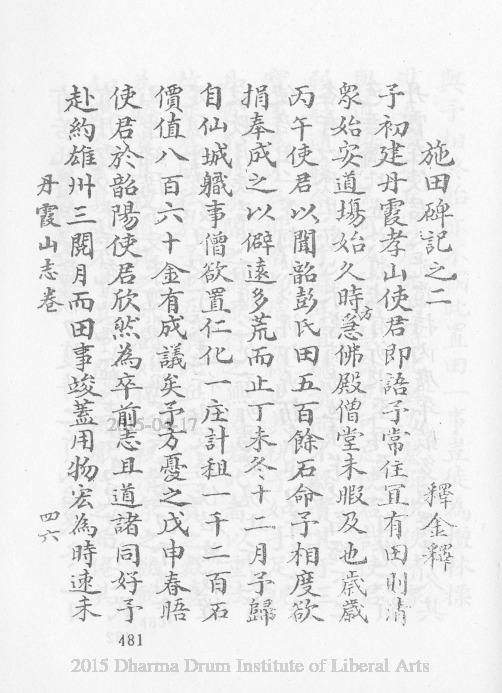 施田碑記之二
釋金釋
予初建丹霞孝山使君即語予常住宜有田則清
眾始安道場始久時方急佛殿僧堂未暇及也歲
丙午使君以聞韶彭氏田五百餘石命予相度欲
捐奉成之以僻遠多荒而止丁未冬十二月予歸
自仙城職事僧欲置仁化一庄計租一千二百石
價值八百六十金有成議矣予方憂之戊申春晤
使君於韶陽使君欣然為卒前志且道諸同好予
赴約雄州三閱月而田事竣蓋用物宏為時速未
丹霞山志卷
四六
2015-04-17
481
2015 Dharma Drum Institute of Liberal Arts